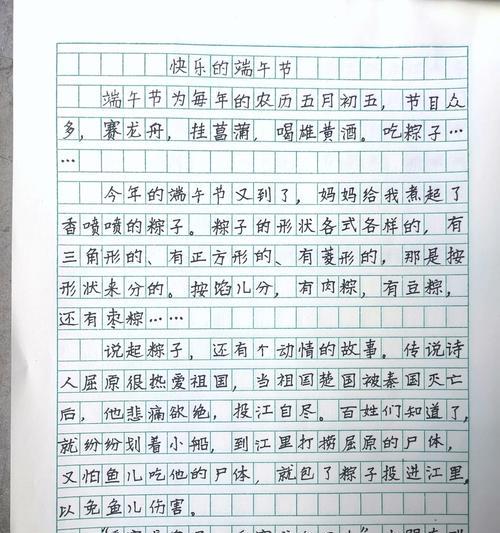 快乐的端午节
端午节为每年的农历五月初五，节目众
多，赛龙舟，挂菖蒲，喝雄黄酒。吃粽子…
…
今年的端午节又到了，妈妈给我煮起了
香喷喷的粽子。粽子的形状各式各样的，有
三角形的、有正方形的、有菱形的，那是按
形状来分的。按馅儿分，有肉粽，有豆粽，
还有枣粽……
说起粽子，还有个动情的故事。传说诗
人屈原很热爱祖国，当祖国楚国被秦国灭亡
后，他悲痛欲绝，投江自尽。百姓们知道了，
就纷纷划着小船，到江里打捞屈原的尸体，
又怕鱼儿吃他的尸体，就包了粽子投进江里，
以免鱼儿伤害。